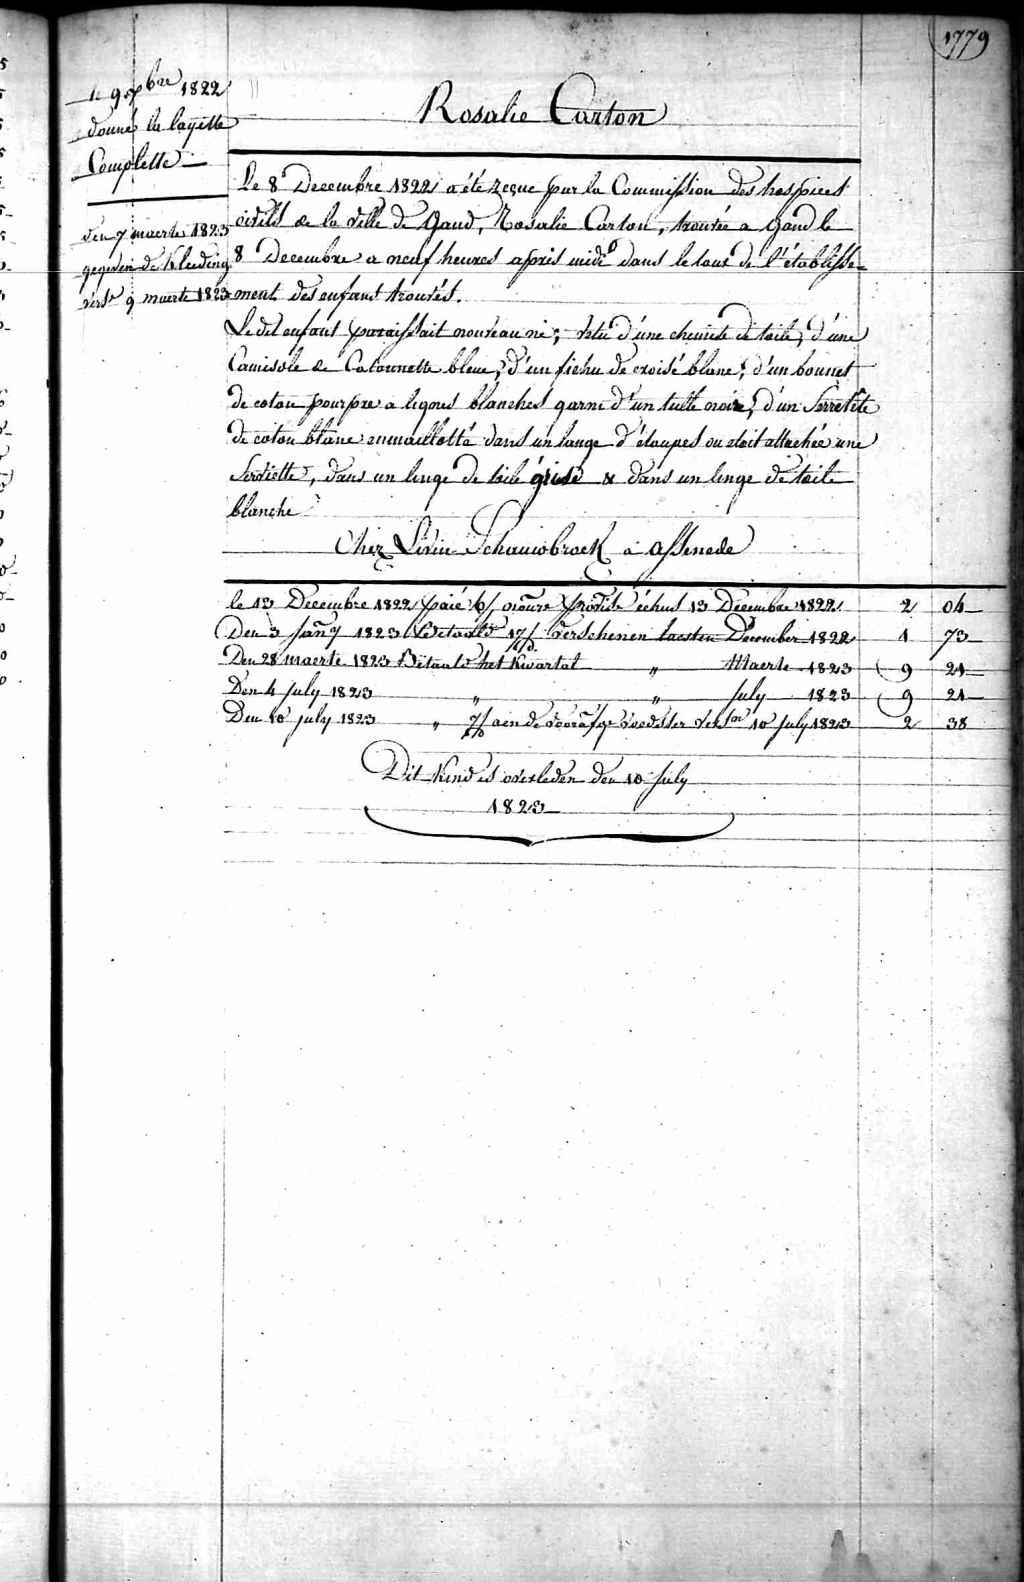 1779
Le 9 Xbre 1822
donné la layette
Complette
den 7 maerte 1823
gegeven de Kleeding
vers. 9 maerte 1823
Rosalie Carton
Le 8 Decembre 1822 a été reçue par la Commission des hospices
civils de la ville de Gand, Rosalie Carton, trouvée a Gand le
8 Decembre a neuf heures après midi dans le tour de l'établisse-
ment des enfans trouvés.
Le dit enfant paraissait nouveau né; vetu d'une chemise de toile, d'une
Camisole de Cotonnette bleue, d'un fichu de croisé blanc, d'un bonnet
de coton pourpre a lignes blanches garni d'un tulle noir, d'un Serretête
de coton blanc emmaillotté dans un lange d'étoupes ou etoit attachée une
Serviette, dans un linge de toile grise & dans un linge de toile
blanche
Chez Livin Schauwbroek à Assenede
le 13 Decembre 1822 paié échus 13 Decembre 1822 2 04
Den 3 Jany 1823 Betaald 17/ verschenen laesten December 1822 1 73
Den 28 maerte 1823 Betaald het Kwartal " Maerte 1823 9 21
Den 4 July 1823 " " July 1823 9 21
Den 10 july 1823 " aen de voedster 10 July 1823 2 38
Dit Kind is overleden den 10 July
1823